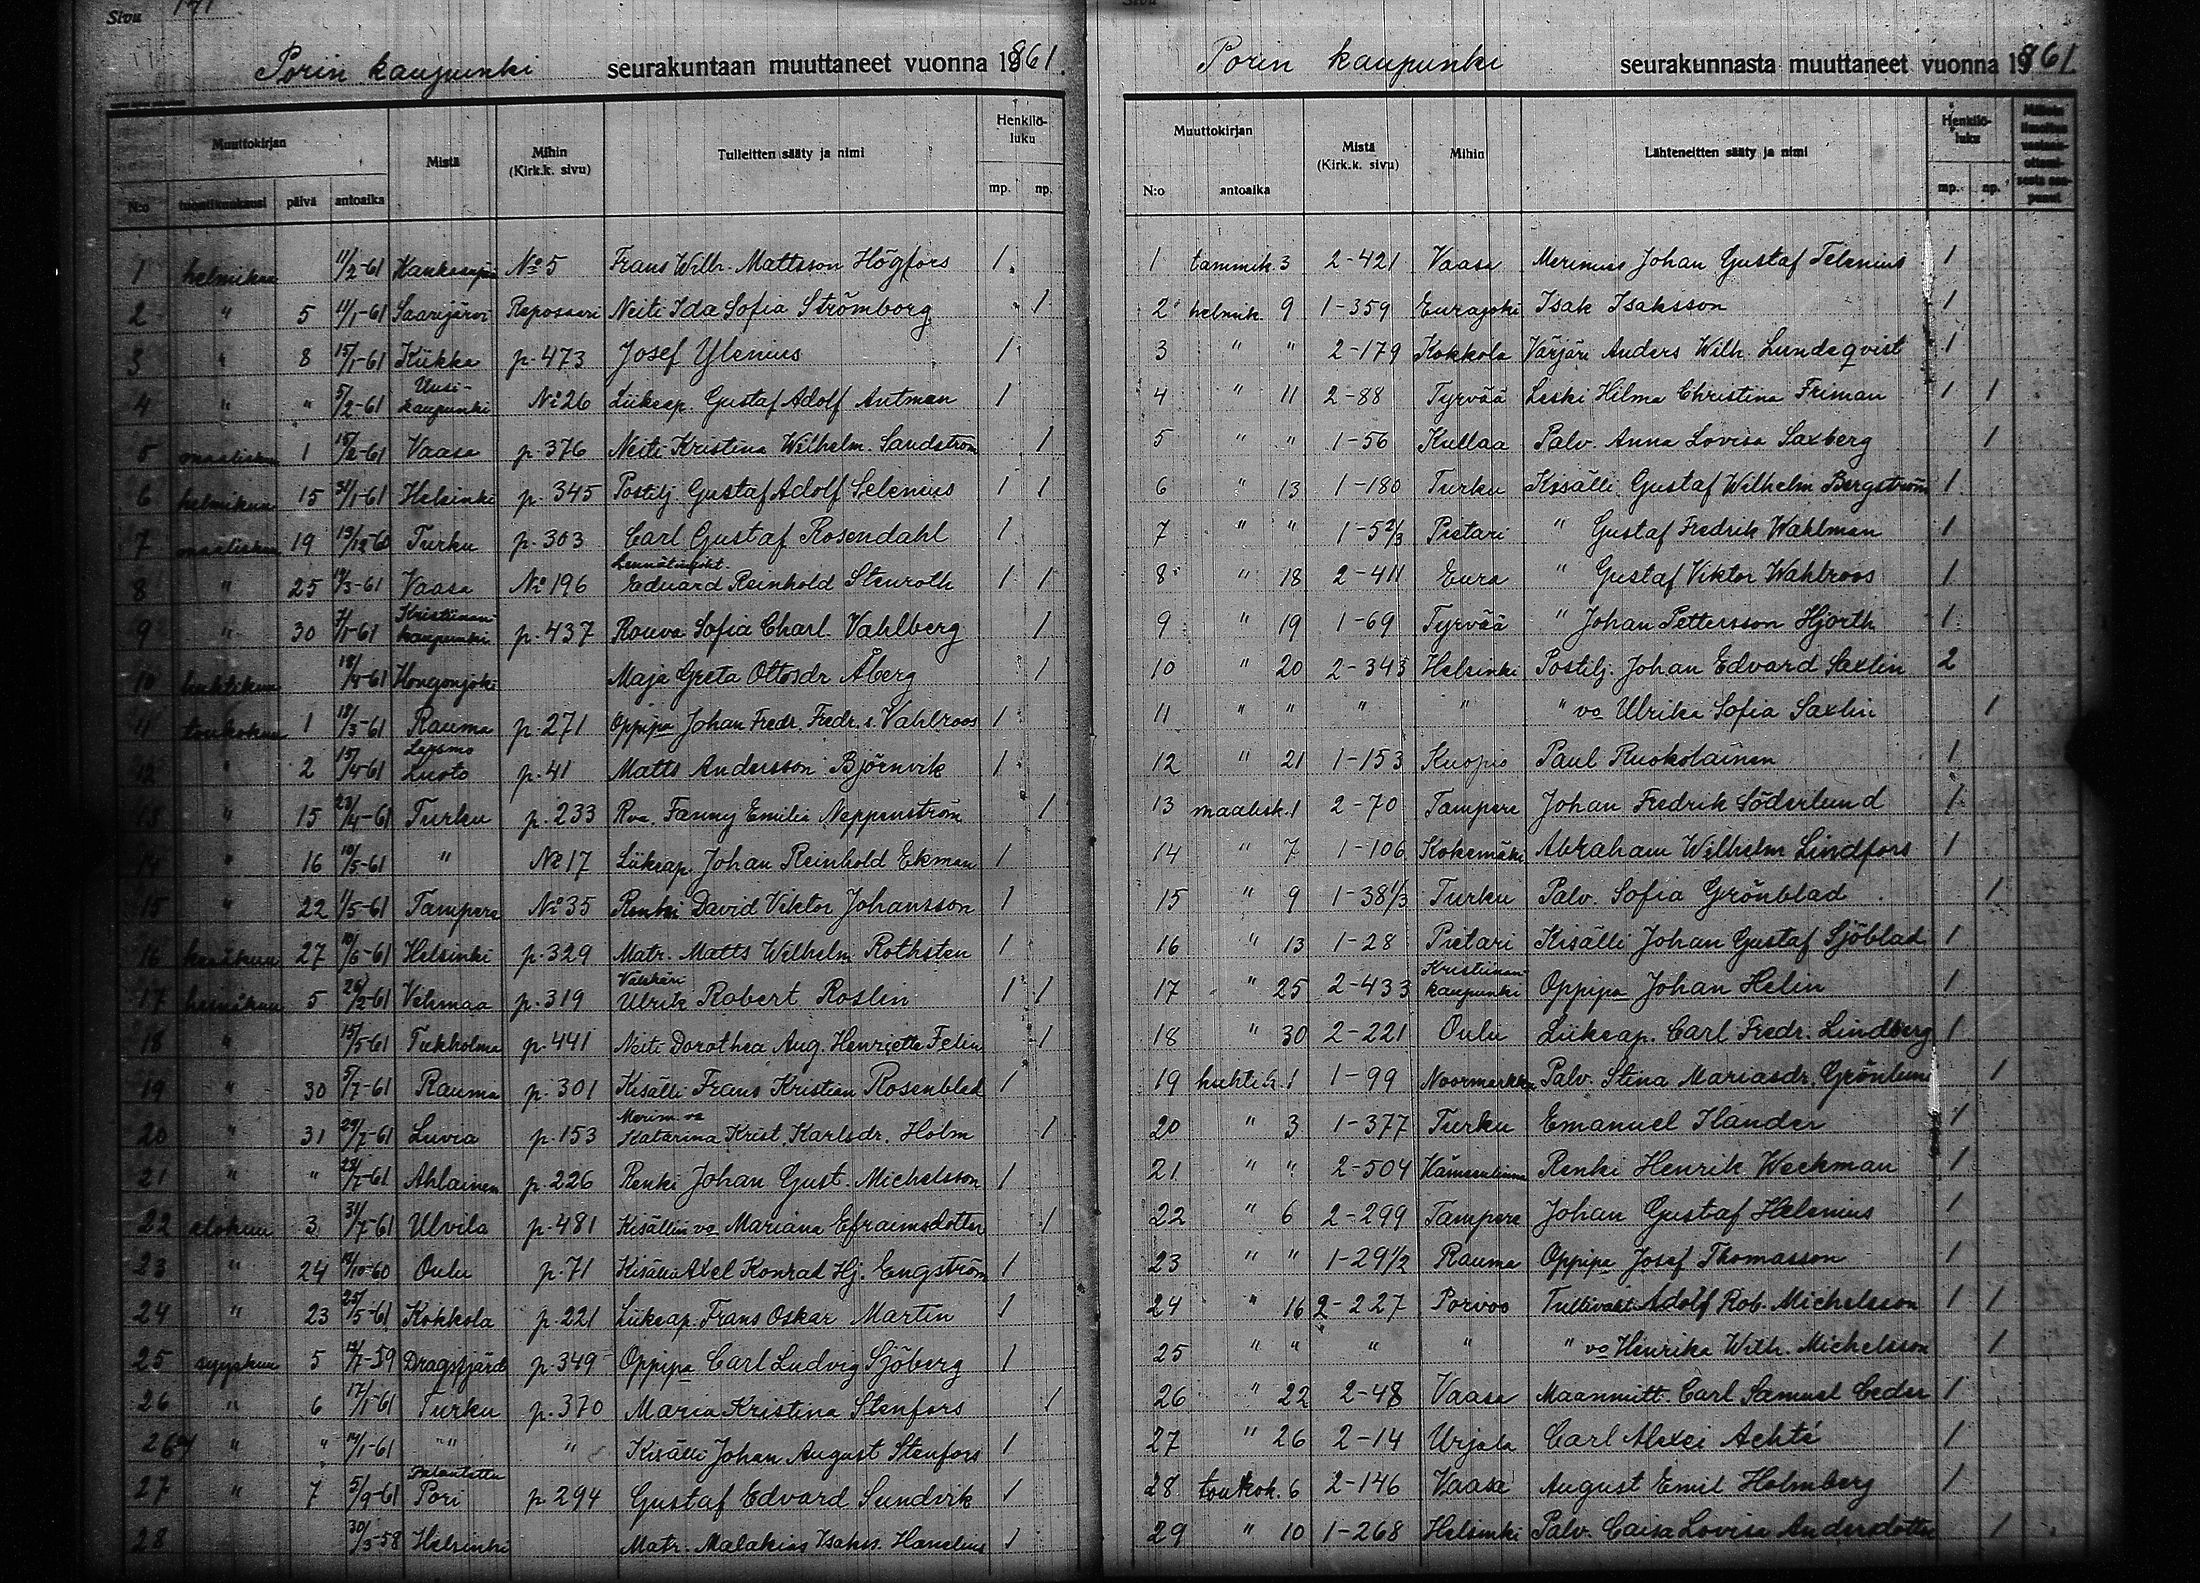 Sivu 171
Porin kaupunki seurakuntaan muuttaneet vuonna 1861.
Muuttokirjan Mistä Mihin (Kirk.k. sivu) Tulleitten sääty ja nimi Henkilö-luku
N:o tuontikuukausi päivä antoaika mp. np.
1 helmikuu 11/2-61 No 5 Frans Wilh. Mattsson Högfors 1
2 " 5 11/1-61 Saarijärvi Reposaari Neiti Ida Sofia Strömborg 1
3 " 8 15/1-61 Kiikka p. 473 Josef Ylenius 1
4 " " 5/2-61 Uusi-kaupunki No 26 Liikeap. Gustaf Adolf Autman 1
5 maalisku 1 15/2-61 Vaasa p. 376 Neiti Kristina Wilhelm. Sandström 1
6 helmikuu 15 31/1-61 Helsinki p. 345 Postilj. Gustaf Adolf Selenius 1 1
7 maalisku 19 19/12-60 Turku p. 303 Carl Gustaf Rosendahl 1
8 " 25 19/3-61 Vaasa No 196 Eduard Reinhold Stenroth 1 1
9 " 30 7/1-61 Kristiinan-kaupunki p. 437 Rouva Sofia Charl. Vahlberg 1
10 huhtikuu 18/4-61 Hongonjoki Maja Greta Ottosdr Åberg 1
11 toukokuu 1 18/3-61 Rauma p. 271 Oppipa Johan Fredr. Fredr. s. Vahlroos 1
12 " 2 15/4-61 Luoto p. 41 Matts Andersson Björnvik 1
13 " 15 23/4-61 Turku p. 233 Rva. Fanny Emilia Neppenström 1
14 " 16 10/5-61 " No 17 Liikeap. Johan Reinhold Ekman 1
15 " 22 11/5-61 Tampere No 35 Renki David Viktor Johansson 1
16 kesäkuu 27 10/6-61 Helsinki p. 329 Matr. Matts Wilhelm Rothsten 1
17 heinäkuu 5 26/2-61 Vehmaa p. 319 Välskäri Ulrik Robert Roslin 1 1
18 " 15/5-61 Tukholma p. 441 Neiti Dorothea Aug. Henriette Felin 1
19 " 30 5/7-61 Rauma p. 301 Kisälli Frans Kristian Rosenblad 1
20 " 31 29/7-61 Luvia p. 153 Merim. va Katarina Krist. Karlsdr. Holm 1
21 " " 28/7-61 Ahlainen p. 226 Renki Johan Gust. Michelsson 1
22 elokuu 3 31/7-61 Ulvila p. 481 Kisällin va Mariana Efraimsdotter 1
23 " 24 12/10-60 Oulu p. 71 Kisälli Axel Konrad Hj. Engström 1
24 " 23 25/5-61 Kokkola p. 221 Liikeap. Frans Oskar Martin 1
25 syyskuu 5 12/7-59 Dragsfjärd p. 349 Oppipa Carl Ludvig Sjöberg 1
26 " 6 17/1-61 Turku p. 370 Maria Kristina Stenfors 1
26 " " 14/1-61 " " " Kisälli Johan August Stenfors 1
27 " 7 5/9-61 Palautettu Pori p. 294 Gustaf Edvard Sundvik 1
28 30/3-58 Helsinki Matr. Malakias Isaks. Hanelius 1
Sivu
Porin kaupunki seurakunnasta muuttaneet vuonna 1861.
Muuttokirjan Mistä (Kirk.k. sivu) Mihin Lähteneitten sääty ja nimi Henkilö-luku
N:o antoaika mp. np.
1 tammik. 3 2-421 Vaasa Merimies Johan Gustaf Telenius 1
2 helmik. 9 1-359 Eurajoki Isak Isaksson 1
3 " " 2-179 Kokkola Värjäri Anders Wilh. Lundeqvist 1
4 " 11 2-88 Tyrvää Leski Hilma Christina Friman 1 1
5 " " 1-56 Kullaa Palv. Anna Lovisa Saxberg 1
6 " 13 1-180 Turku Kisälli Gustaf Wilhelm Bergström 1
7 " " 1-52/3 Pietari " Gustaf Fredrik Wahlman 1
8 " 18 2-411 Eura " Gustaf Viktor Wahlroos 1
9 " 19 1-69 Tyrvää " Johan Pettersson Hjorth 1
10 " 20 2-343 Helsinki Postilj. Johan Edvard Saxlin 2
11 " " " " " va Ulrika Sofia Saxlin 1
12 " 21 1-153 Kuopio Paul Ruokolainen 1
13 maalisk. 1 2-70 Tampere Johan Fredrik Söderlund 1
14 " 7 1-106 Kokemäki Abraham Wilhelm Lindfors 1
15 " 9 1-38 1/3 Turku Palv. Sofia Grönblad 1
16 " 13 1-28 Pietari Kisälli Johan Gustaf Sjöblad 1
17 " 25 2-433 Kristiinan-kaupunki Oppipa Johan Helin 1
18 " 30 2-221 Oulu Liikeap. Carl Fredr. Lindberg 1
19 huhtik. 1 1-99 Noormarkku Palv. Stina Mariasdr. Grönlund 1
20 " 3 1-377 Turku Emanuel Ilander 1
21 " " 2-504 Hämeenlinna Renki Henrik Weckman 1
22 " 6 2-299 Tampere Johan Gustaf Helenius 1
23 " " 1-29 1/2 Rauma Oppipa Josef Thomasson 1
24 " 16 2-227 Porvoo Tullivast. Adolf Rob. Michelsson 1 1
25 " " " " " va Henrika Wilh. Michelsson 1
26 " 22 2-48 Vaasa Maanmitt. Carl Samuel Ceder 1
27 " 26 2-14 Urjala Carl Alexei Achté 1
28 toukok. 6 2-146 Vaasa August Emil Holmberg 1
29 " 10 1-268 Helsinki Palv. Caisa Lovisa Andersdotter 1